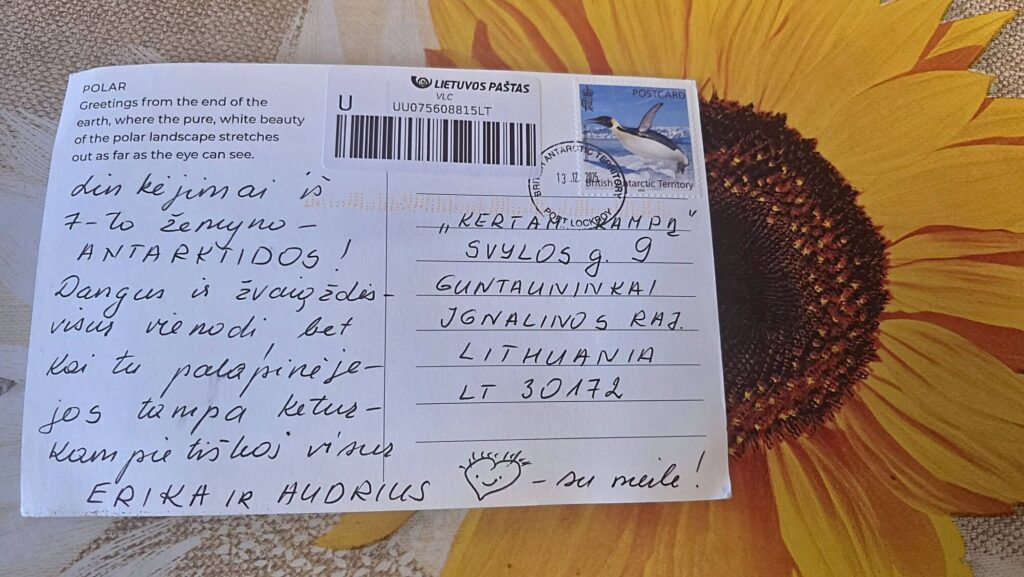 POLAR
Greetings from the end of the
earth, where the pure, white beauty
of the polar landscape stretches
out as far as the eye can see.
Linkėjimai iš
7-to žemyno –
ANTARKTIDOS!
Dangus ir žvaigždės –
visur vienodi, bet
kai tu palapinėje –
jos tampa ketur-
kampietiškos visur
ERIKA IR AUDRIUS
LIETUVOS PAŠTAS
VLC
U
UU075608815LT
POSTCARD
British Antarctic Territory
BRITISH ANTARCTIC TERRITORY
13.12.2025
POST LOCKROY
„KERTAM KAMPĄ"
SVYLOS g. 9
GUNTAUNINKAI
IGNALINOS RAJ.
LITHUANIA
LT 30172
– su meile!